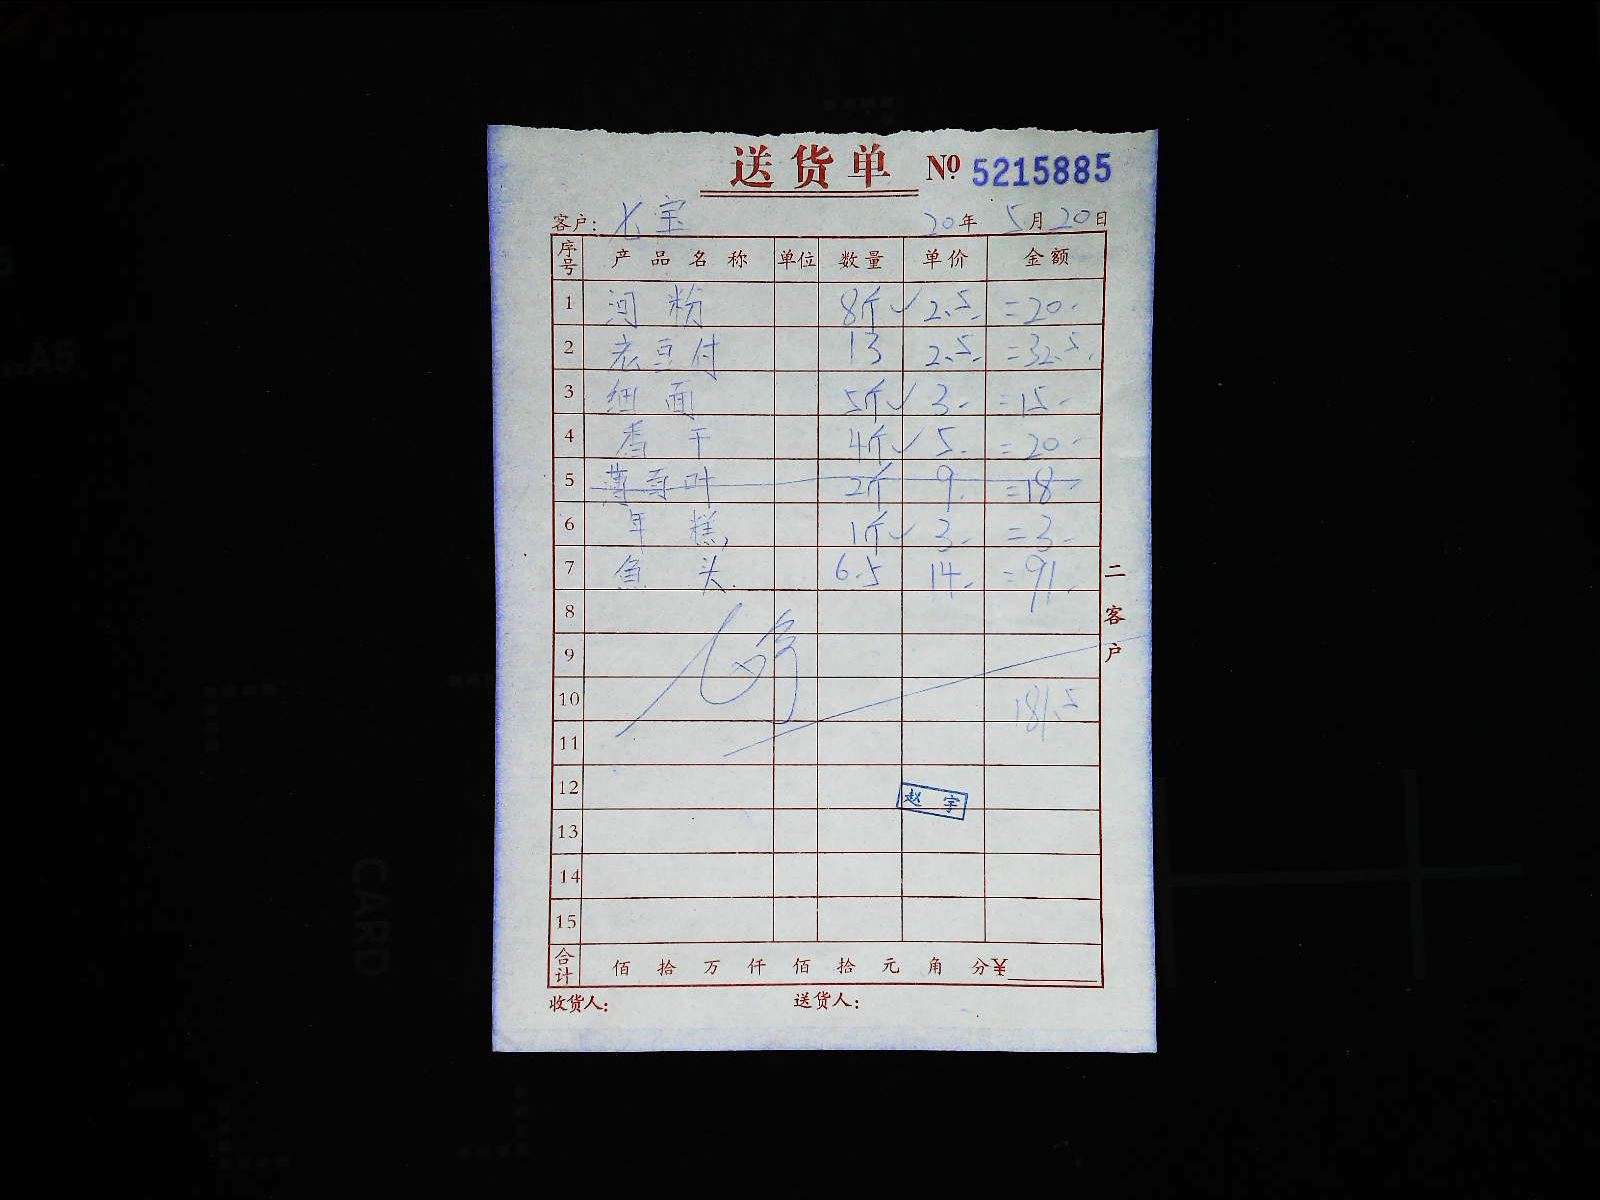 送货单 № 5215885
客户: 七宝 20年 5月 20日
序号 产品名称 单位 数量 单价 金额
1 河粉 8斤✓ 2.5 =20-
2 老豆付 13 2.5- =32.5-
3 细面 5斤✓ 3- =15-
4 香干 4斤✓ 5- =20-
5 叶 2斤 9. =18-
6 年糕 1斤✓ 3- =3-
7 鱼头 6.5 14- =91-
8
9
10 181.5
11
12 赵宇
13
14
15
合计 佰 拾 万 仟 佰 拾 元 角 分¥
收货人: 送货人:
二客户
A5
CARD